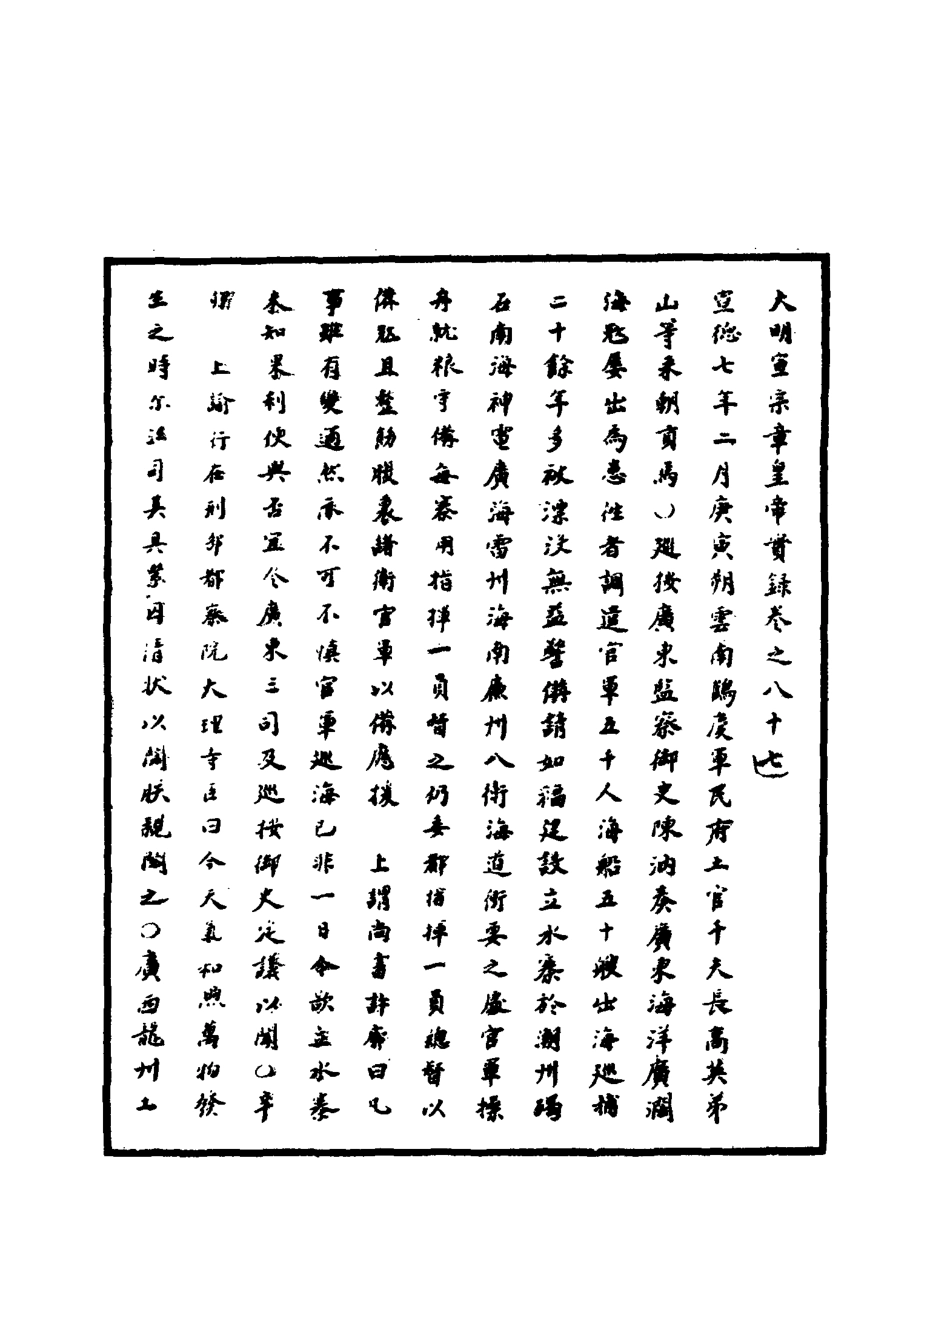 大明宣宗章皇帝實錄卷之八十七
宣德七年二月庚寅朔雲南鶴慶軍民府土官千夫長高英弟
山等來朝貢馬○廵按廣東監察御史陳汭奏廣東海洋廣濶
海㓂屡出為患徃者調遣官軍五千人海船五十艘出海廵捕
二十餘年多被漂没無益警備請如福建設立水寨於潮州碣
石南海神電廣海雷州海南廉州八衛海道衝要之處官軍操
舟就粮守備每寨用指揮一員督之仍委都指揮一員緫督以
備㓂且整飭腹裏諸衛官軍以備應援　上謂尚書許廓曰凡
事雖有變通然亦不可不慎官軍廵海已非一日今欲立水寨
未知果利便與否宜令廣東三司及廵按御史定議以聞○辛
卯　上諭行在刑部都察院大理寺臣曰今天氣和煦萬物發
生之時尔法司具具繫囚情狀以聞朕親閱之○廣西龍州土